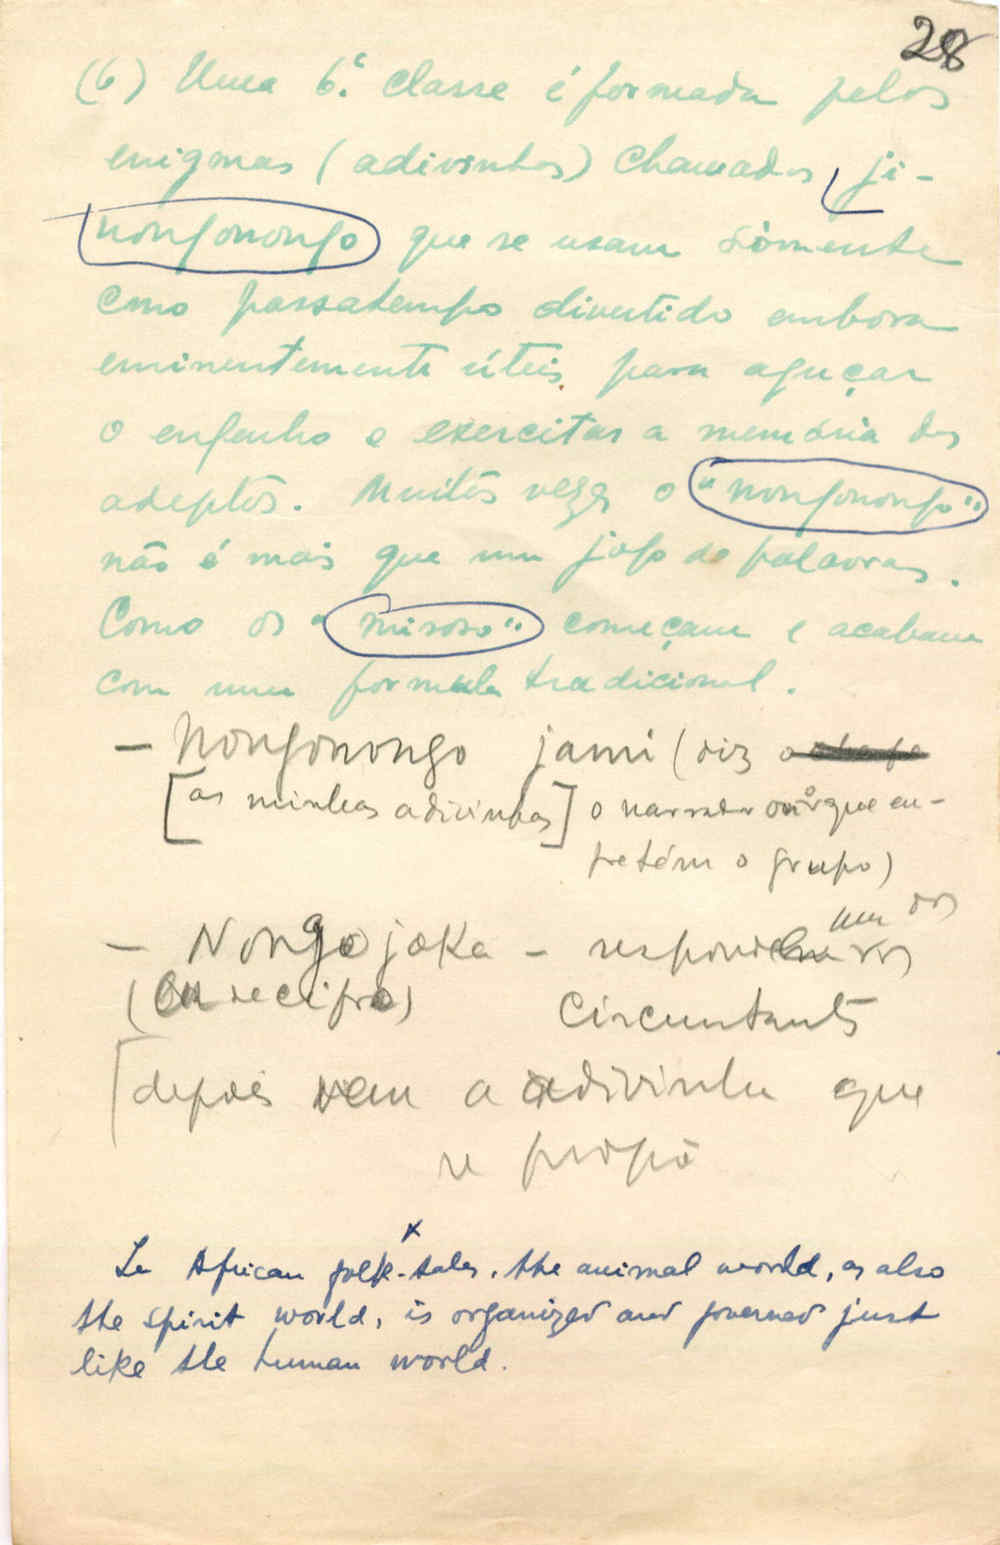 28
(6) Uma 6.ª classe é formada pelos
enigmas (adivinhas) chamados ji-
nongonongo que se usam sòmente
como passatempo divertido embora
eminentemente úteis para aguçar
o engenho e exercitar a memória dos
adeptos. Muitas vezes o "nongonongo"
não é mais que um jogo de palavras.
Como os "misoso" começam e acabam
com uma formula tradicional.
– Nongonongo jami (diz o
[as minhas adivinhas] o narrador ou o que en-
tretém o grupo)
– Nongo jaka – respondem os
(em recipro) circunstants
[depois vem a adivinha que
se propõ
In African folk-tales, the animal world, as also
the spirit world, is organized and governed just
like the human world.